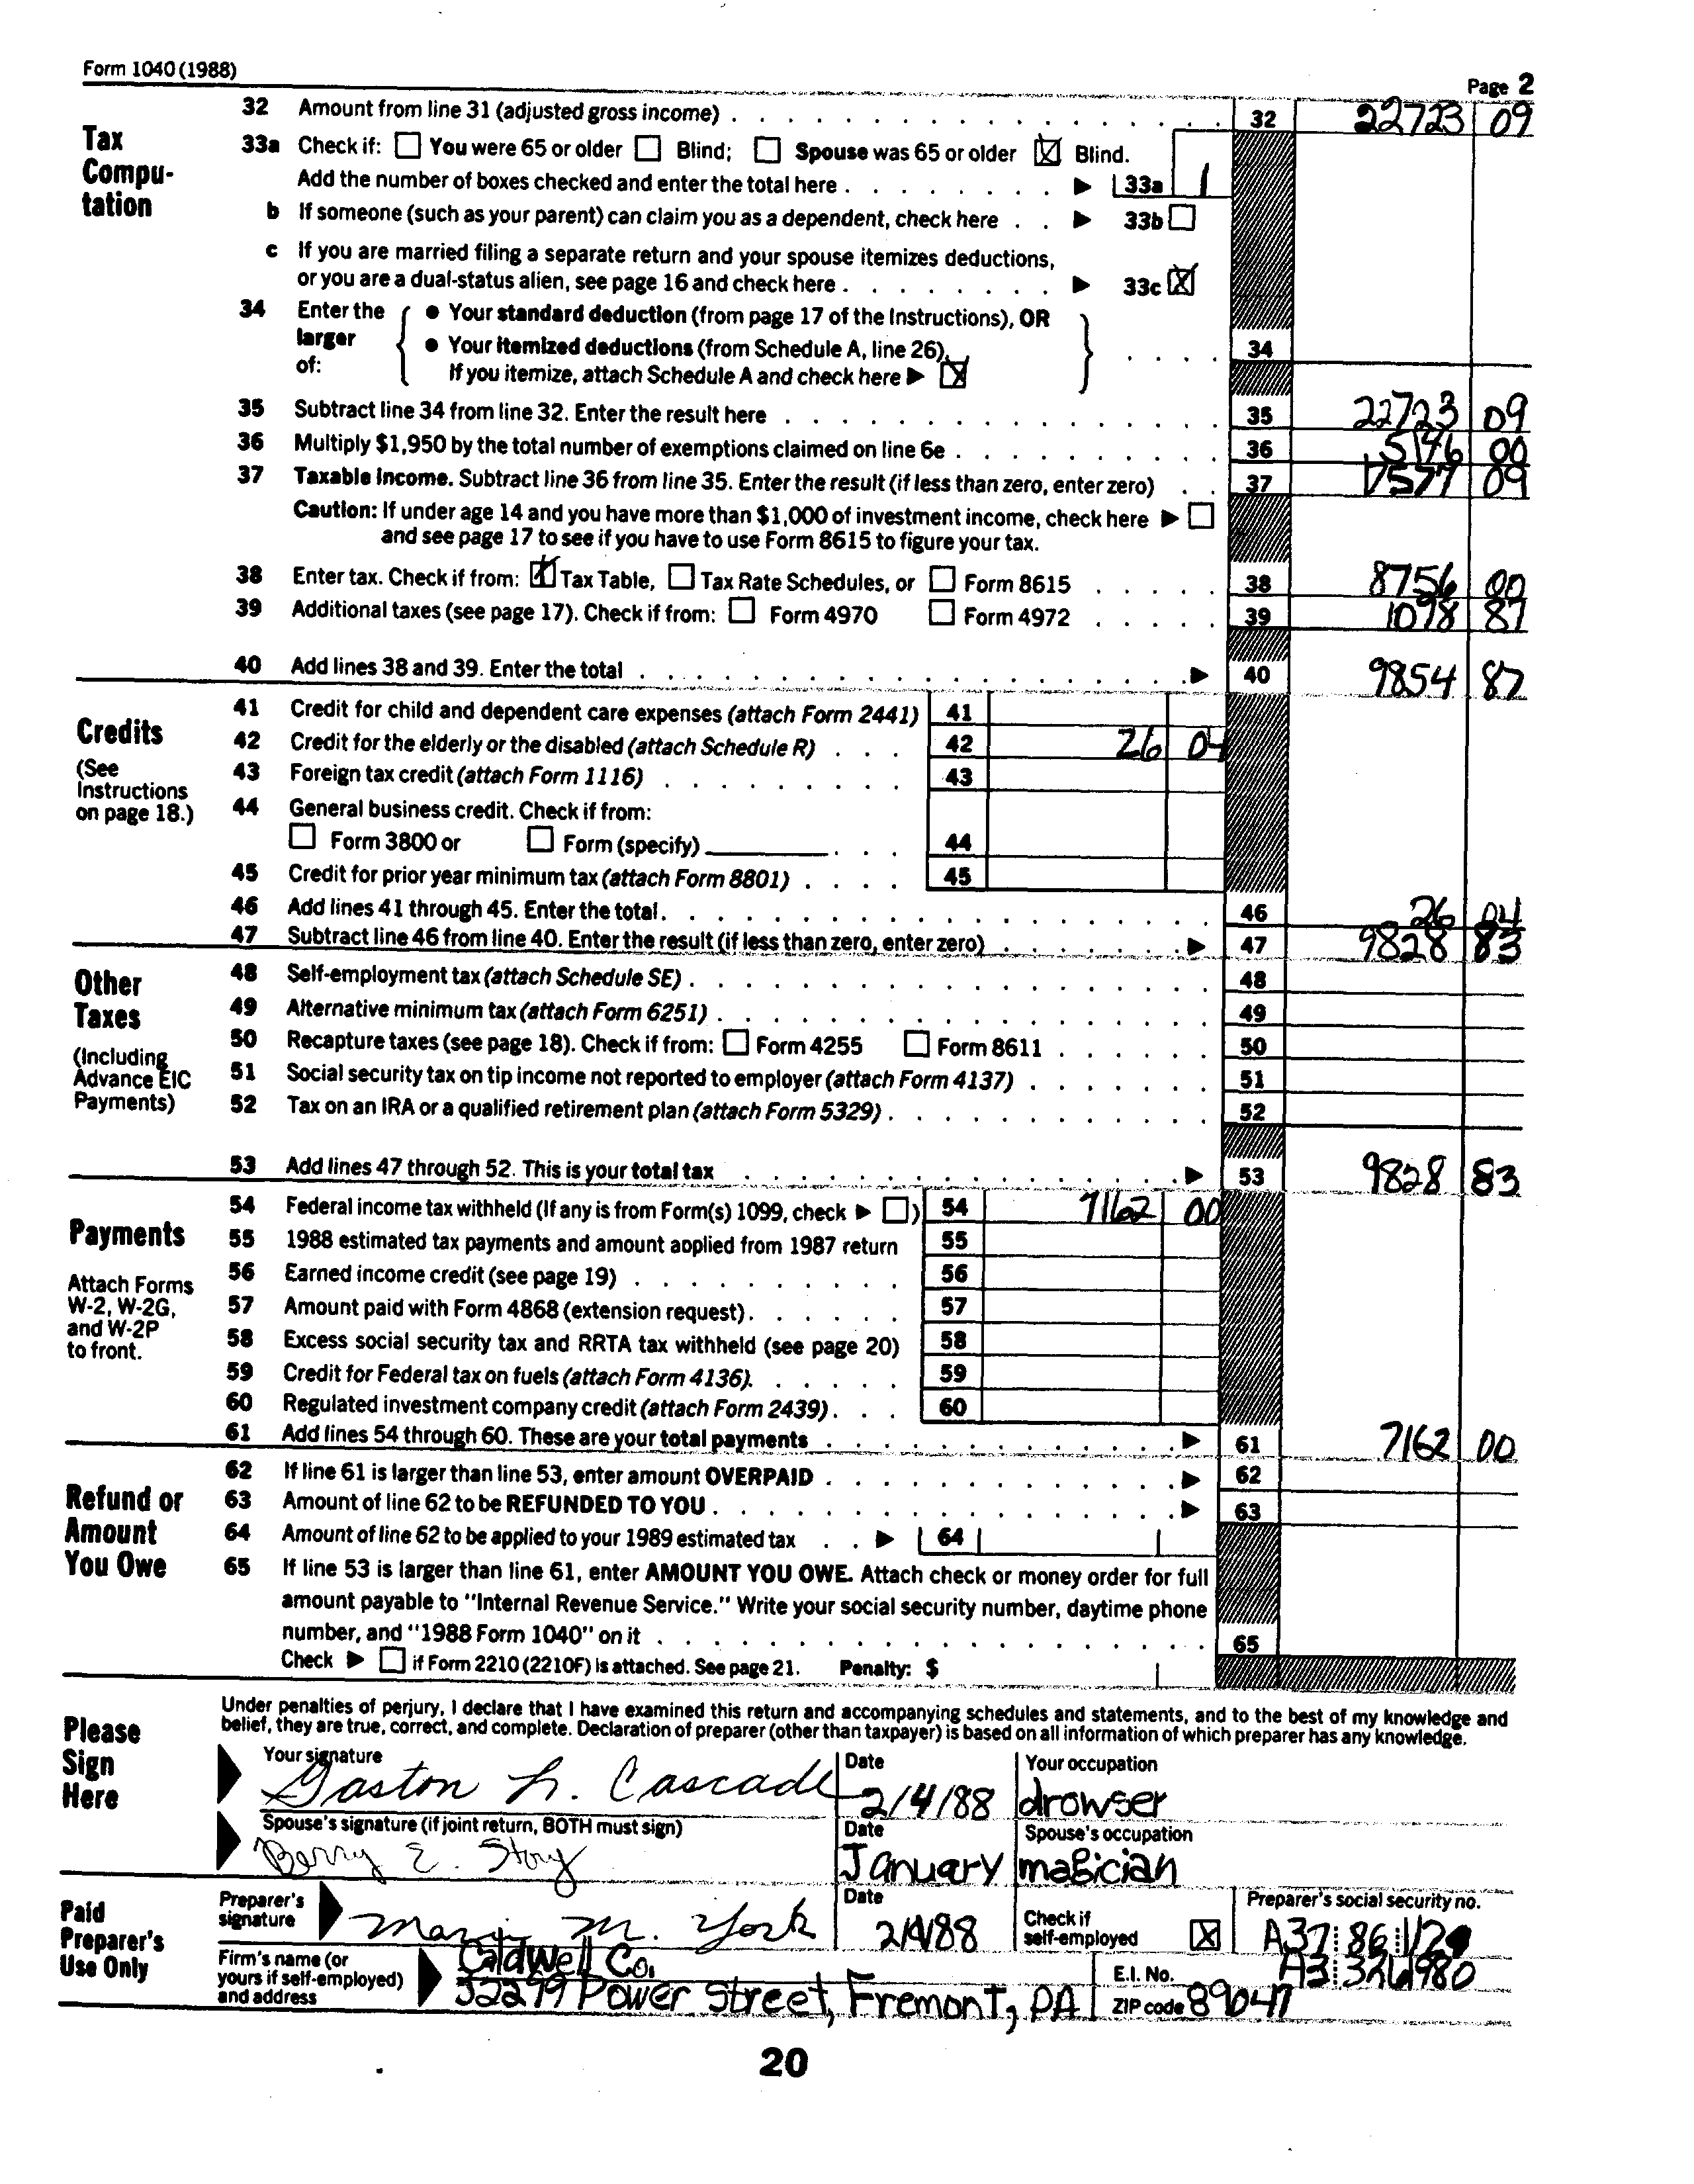 Form 1040 (1988)
Page 2
Tax Computation
32 Amount from line 31 (adjusted gross income) 32 22723 09
33a Check if: You were 65 or older Blind; Spouse was 65 or older Blind.
Add the number of boxes checked and enter the total here 33a 1
b If someone (such as your parent) can claim you as a dependent, check here 33b
c If you are married filing a separate return and your spouse itemizes deductions,
or you are a dual-status alien, see page 16 and check here 33c
34 Enter the larger of:
• Your standard deduction (from page 17 of the Instructions), OR
• Your itemized deductions (from Schedule A, line 26). 34
If you itemize, attach Schedule A and check here
35 Subtract line 34 from line 32. Enter the result here 35 22723 09
36 Multiply $1,950 by the total number of exemptions claimed on line 6e 36 5146 00
37 Taxable Income. Subtract line 36 from line 35. Enter the result (if less than zero, enter zero) 37 09
Caution: If under age 14 and you have more than $1,000 of investment income, check here
and see page 17 to see if you have to use Form 8615 to figure your tax.
38 Enter tax. Check if from: Tax Table, Tax Rate Schedules, or Form 8615 38 8756 00
39 Additional taxes (see page 17). Check if from: Form 4970 Form 4972 39 1098 87
40 Add lines 38 and 39. Enter the total 40 9854 87
Credits
(See Instructions on page 18.)
41 Credit for child and dependent care expenses (attach Form 2441) 41
42 Credit for the elderly or the disabled (attach Schedule R) 42 26 04
43 Foreign tax credit (attach Form 1116) 43
44 General business credit. Check if from:
Form 3800 or Form (specify) 44
45 Credit for prior year minimum tax (attach Form 8801) 45
46 Add lines 41 through 45. Enter the total. 46 26 04
47 Subtract line 46 from line 40. Enter the result (if less than zero, enter zero) 47 9828 83
Other Taxes
(Including Advance EIC Payments)
48 Self-employment tax (attach Schedule SE) 48
49 Alternative minimum tax (attach Form 6251) 49
50 Recapture taxes (see page 18). Check if from: Form 4255 Form 8611 50
51 Social security tax on tip income not reported to employer (attach Form 4137) 51
52 Tax on an IRA or a qualified retirement plan (attach Form 5329) 52
53 Add lines 47 through 52. This is your total tax 53 9828 83
Payments
Attach Forms W-2, W-2G, and W-2P to front.
54 Federal income tax withheld (If any is from Form(s) 1099, check ) 54 7162 00
55 1988 estimated tax payments and amount applied from 1987 return 55
56 Earned income credit (see page 19) 56
57 Amount paid with Form 4868 (extension request) 57
58 Excess social security tax and RRTA tax withheld (see page 20) 58
59 Credit for Federal tax on fuels (attach Form 4136). 59
60 Regulated investment company credit (attach Form 2439) 60
61 Add lines 54 through 60. These are your total payments 61 7162 00
Refund or Amount You Owe
62 If line 61 is larger than line 53, enter amount OVERPAID 62
63 Amount of line 62 to be REFUNDED TO YOU 63
64 Amount of line 62 to be applied to your 1989 estimated tax 64
65 If line 53 is larger than line 61, enter AMOUNT YOU OWE. Attach check or money order for full
amount payable to "Internal Revenue Service." Write your social security number, daytime phone
number, and "1988 Form 1040" on it 65
Check if Form 2210 (2210F) is attached. See page 21. Penalty: $
Please Sign Here
Under penalties of perjury, I declare that I have examined this return and accompanying schedules and statements, and to the best of my knowledge and
belief, they are true, correct, and complete. Declaration of preparer (other than taxpayer) is based on all information of which preparer has any knowledge.
Your signature Date Your occupation
Gaston h. Cascade 2/4/88 drowser
Spouse's signature (if joint return, BOTH must sign) Date Spouse's occupation
Berry E. Story January magician
Paid Preparer's Use Only
Preparer's signature Date Check if self-employed Preparer's social security no.
M. York A37 86
Firm's name (or yours if self-employed) and address
Caldwell Co. E.I. No.
52299 Power Street, Fremont, PA ZIP code 89047
20